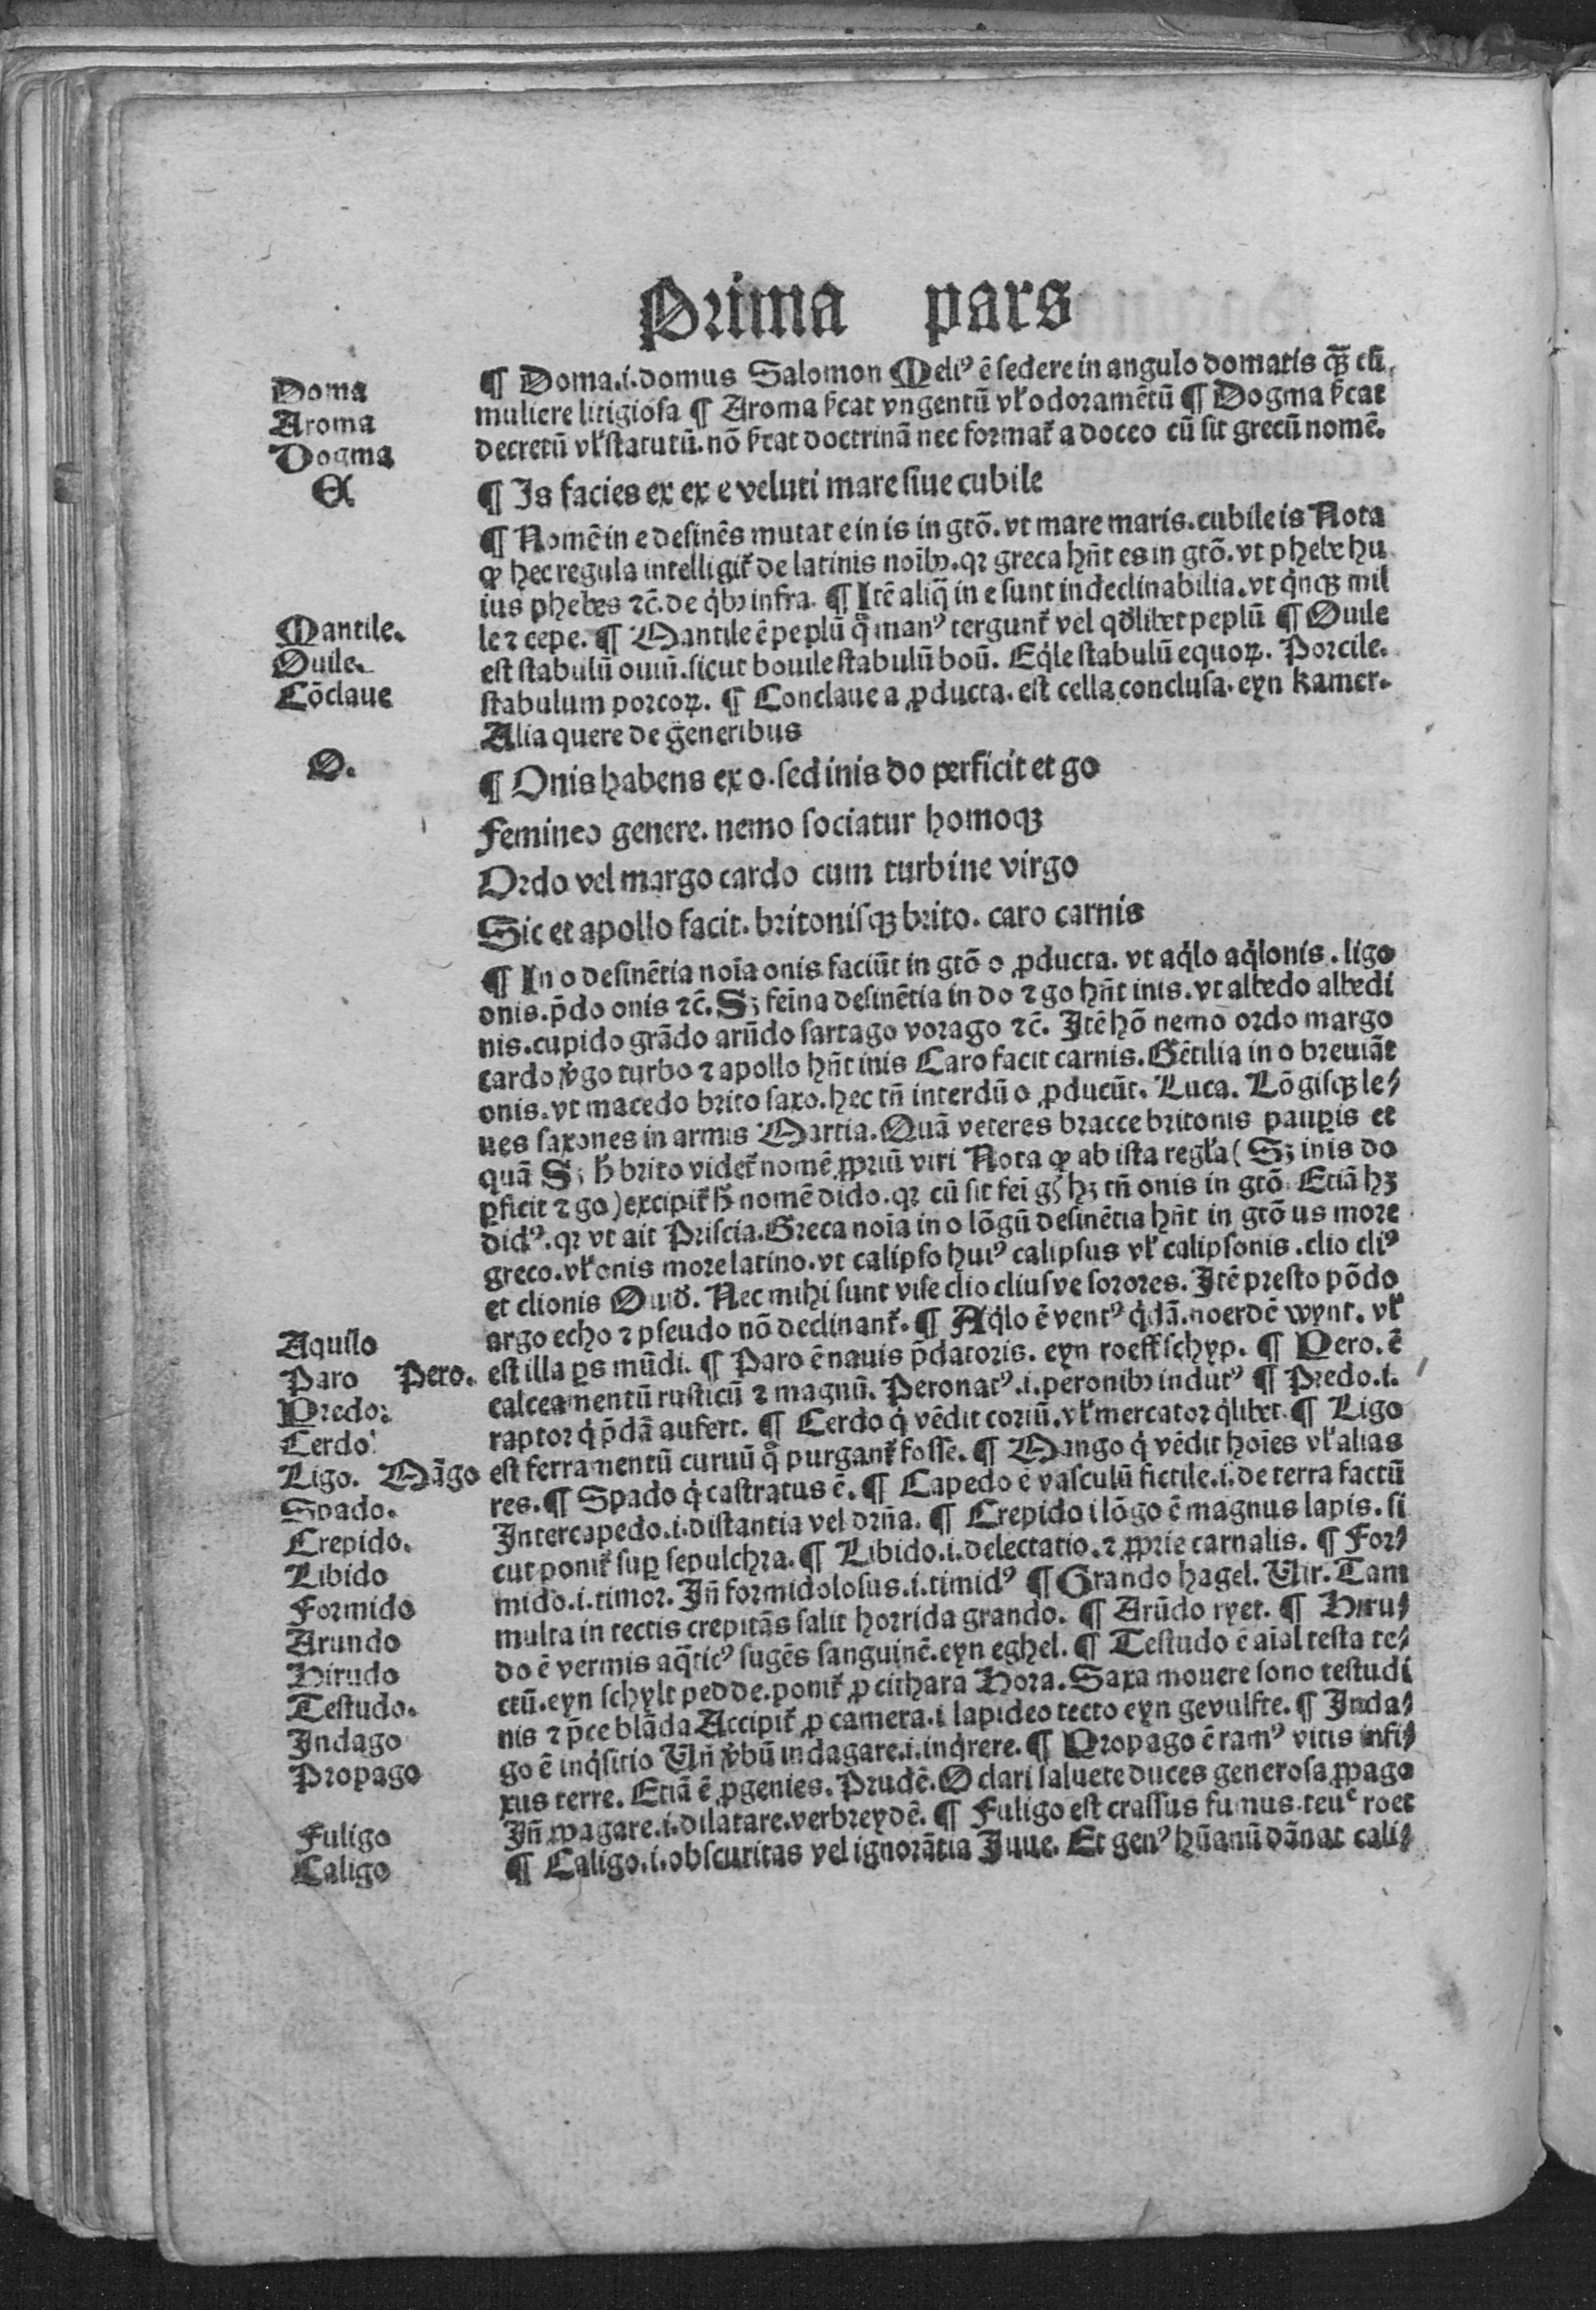 Prima pars
Doma
Aroma
Dogma
E
Mantile.
Ouile.
Cōclaue
O.
Aquilo
Paro Pero.
Predo:
Cerdo
Ligo. Māgo
Spado.
Crepido.
Libido
Formido
Arundo
Hirudo
Testudo.
Indago
Propago
Fuligo
Caligo
¶ Doma.i.domus Salomon Meliꝰ ē sedere in angulo domatis qȝ̄ cū
muliere litigiosa ¶ Aroma ſ̓cat vngentū vl̓ odoramētū ¶ Dogma ſ̓cat
decretū vl̓ statutū. nō ſ̓cat doctrinā nec format̓ a doceo cū sit grecū nomē.
¶ Is facies ex ex e veluti mare siue cubile
¶ Nomē in e desinēs mutat e in is in gtō. vt mare maris. cubile is Nota
ꝙ hec regula intelligit̓ de latinis noībꝫ. qꝛ greca hn̄t es in gtō. vt phebe hu
ius phebes ⁊c̄. de qͥbꝫ infra. ¶ Itē aliq̄ in e sunt indeclinabilia. vt qͥnqꝫ mil
le ⁊ cepe. ¶ Mantile ē peplū qͦ manꝰ tergunt̓ vel qd̓libet peplū ¶ Ouile
est stabulū ouiū. sicut bouile stabulū boū. Eqͥle stabulū equoꝝ. Porcile.
stabulum porcoꝝ. ¶ Conclaue a ꝓducta. est cella conclusa. eyn kamer.
Alia quere de generibus
¶ Onis habens ex o. sed inis do perficit et go
Femineo genere. nemo sociatur homoqꝫ
Ordo vel margo cardo cum turbine virgo
Sic et apollo facit. britonisqꝫ brito. caro carnis
¶ In o desinētia noīa onis faciūt in gtō o ꝓducta. vt aqͥlo aqͥlonis. ligo
onis. p̄do onis ⁊c̄. Sꝫ feīna desinētia in do ⁊ go hn̄t inis. vt albedo albedi
nis. cupido grādo arūdo sartago vorago ⁊c̄. Itē hō nemo ordo margo
cardo v̓go turbo ⁊ apollo hn̄t inis Caro facit carnis. Gētilia in o breuiāt
onis. vt macedo brito saxo. hec tn̄ interdū o ꝓducūt. Luca. Lōgisqꝫ le⸗
ues saxones in armis Martia. Quā veteres bracce britonis pauꝑis et
quā Sꝫ h̓ brito videt̓ nomē ꝓpriū viri Nota ꝙ ab ista regl̓a ( Sꝫ inis do
ꝑficit ⁊ go ) excipit̓ h̓ nomē dido. qꝛ cū sit feī gn̄s hꝫ tn̄ onis in gtō. Etiā hꝫ
didꝰ. qꝛ vt ait Priscia. Greca noīa in o lōgū desinētia hn̄t in gtō us more
greco. vl̓ onis more latino. vt calipso huiꝰ calipsus vl̓ calipsonis. clio cliꝰ
et clionis Ouid̓. Nec mihi sunt vise clio cliusve sorores. Itē presto pōdo
argo echo ⁊ pseudo nō declinant̓. ¶ Aqͥlo ē ventꝰ qͥdā. noerdē wynt. vl̓
est illa ꝑs mūdi. ¶ Paro ē nauis p̄datoris. eyn roeffschyp. ¶ Pero. ē
calceamentū rusticū ⁊ magnū. Peronatꝰ .i. peronibꝫ indutꝰ ¶ Predo.i.
raptor qͥ p̄dā aufert. ¶ Cerdo qͥ vēdit coriū. vl̓ mercator qͥlibet. ¶ Ligo
est ferramentū curuū qͦ purgant̓ fosse. ¶ Mango qͥ vēdit hoīes vl̓ alias
res. ¶ Spado qͥ castratus ē. ¶ Capedo ē vasculū fictile. i. de terra factū
Intercapedo.i.distantia vel drn̄a. ¶ Crepido i lōgo ē magnus lapis. si
cut ponit̓ suꝑ sepulchra. ¶ Libido.i.delectatio. ⁊ ꝓprie carnalis. ¶ For⸗
mido.i.timor. In̄ formidolosus.i.timidꝰ ¶ Grando hagel. Vir. Tam
multa in tectis crepitās salit horrida grando. ¶ Arūdo ryet. ¶ Hiru⸗
do ē vermis aq̄ticꝰ sugēs sanguinē. eyn eghel. ¶ Testudo ē aīal testa te⸗
ctū. eyn schylt pedde. ponit̓ ꝓ cithara Hora. Saxa mouere sono testudi
nis ⁊ p̄ce blāda Accipit̓ ꝓ camera. i lapideo tecto eyn gevulfte. ¶ Inda⸗
go ē inqͥsitio Vn̄ v̓bū indagare.i.inqͥrere. ¶ Propago ē ramꝰ vitis infi⸗
xus terre. Etiā ē ꝓgenies. Prudē. O clari saluete duces generosa ꝓpago
In̄ ꝓpagare.i.dilatare. verbreydē. ¶ Fuligo est crassus fumus. teuͨ roet
¶ Caligo.i.obscuritas vel ignorātia Juue. Et genꝰ hūanū dānat cali⸗